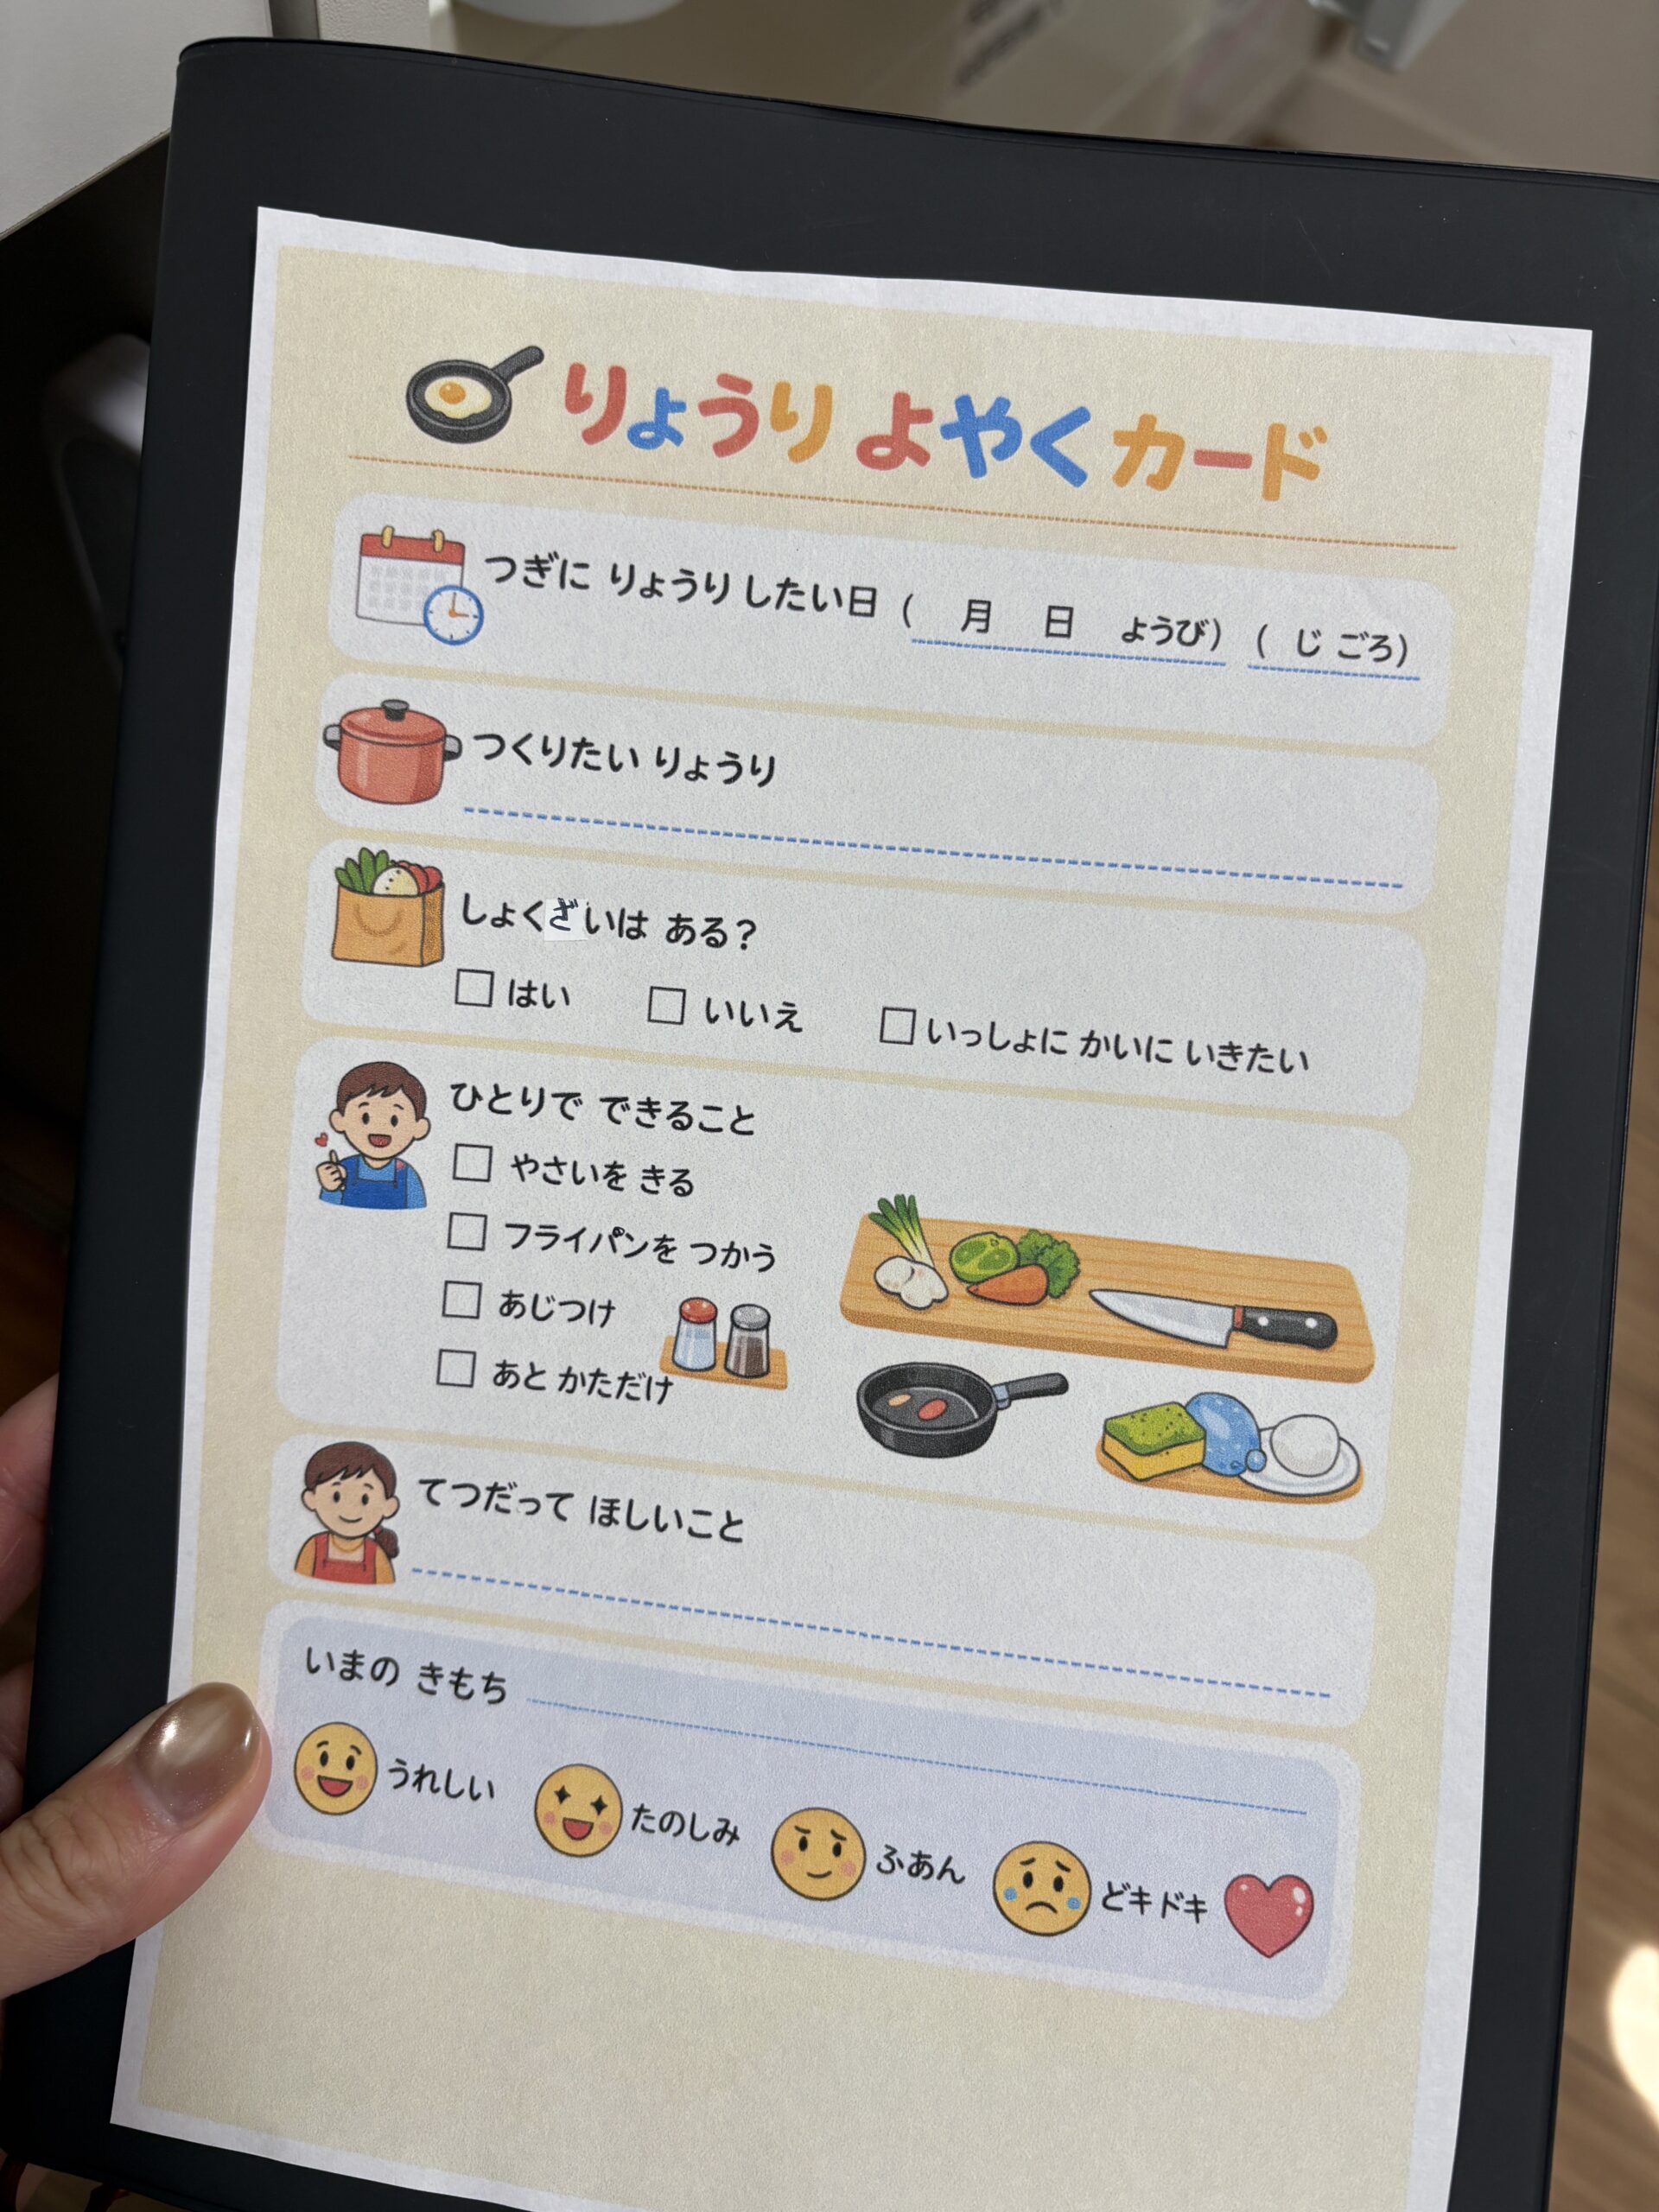 りょうり よやく カード
つぎに りょうり したい日 (　月　日　ようび) (　じ ごろ)
つくりたい りょうり
しょくざいは ある?
□ はい　□ いいえ　□ いっしょに かいに いきたい
ひとりで できること
□ やさいを きる
□ フライパンを つかう
□ あじつけ
□ あと かただけ
てつだって ほしいこと
いまの きもち
うれしい　たのしみ　ふあん　どキドキ